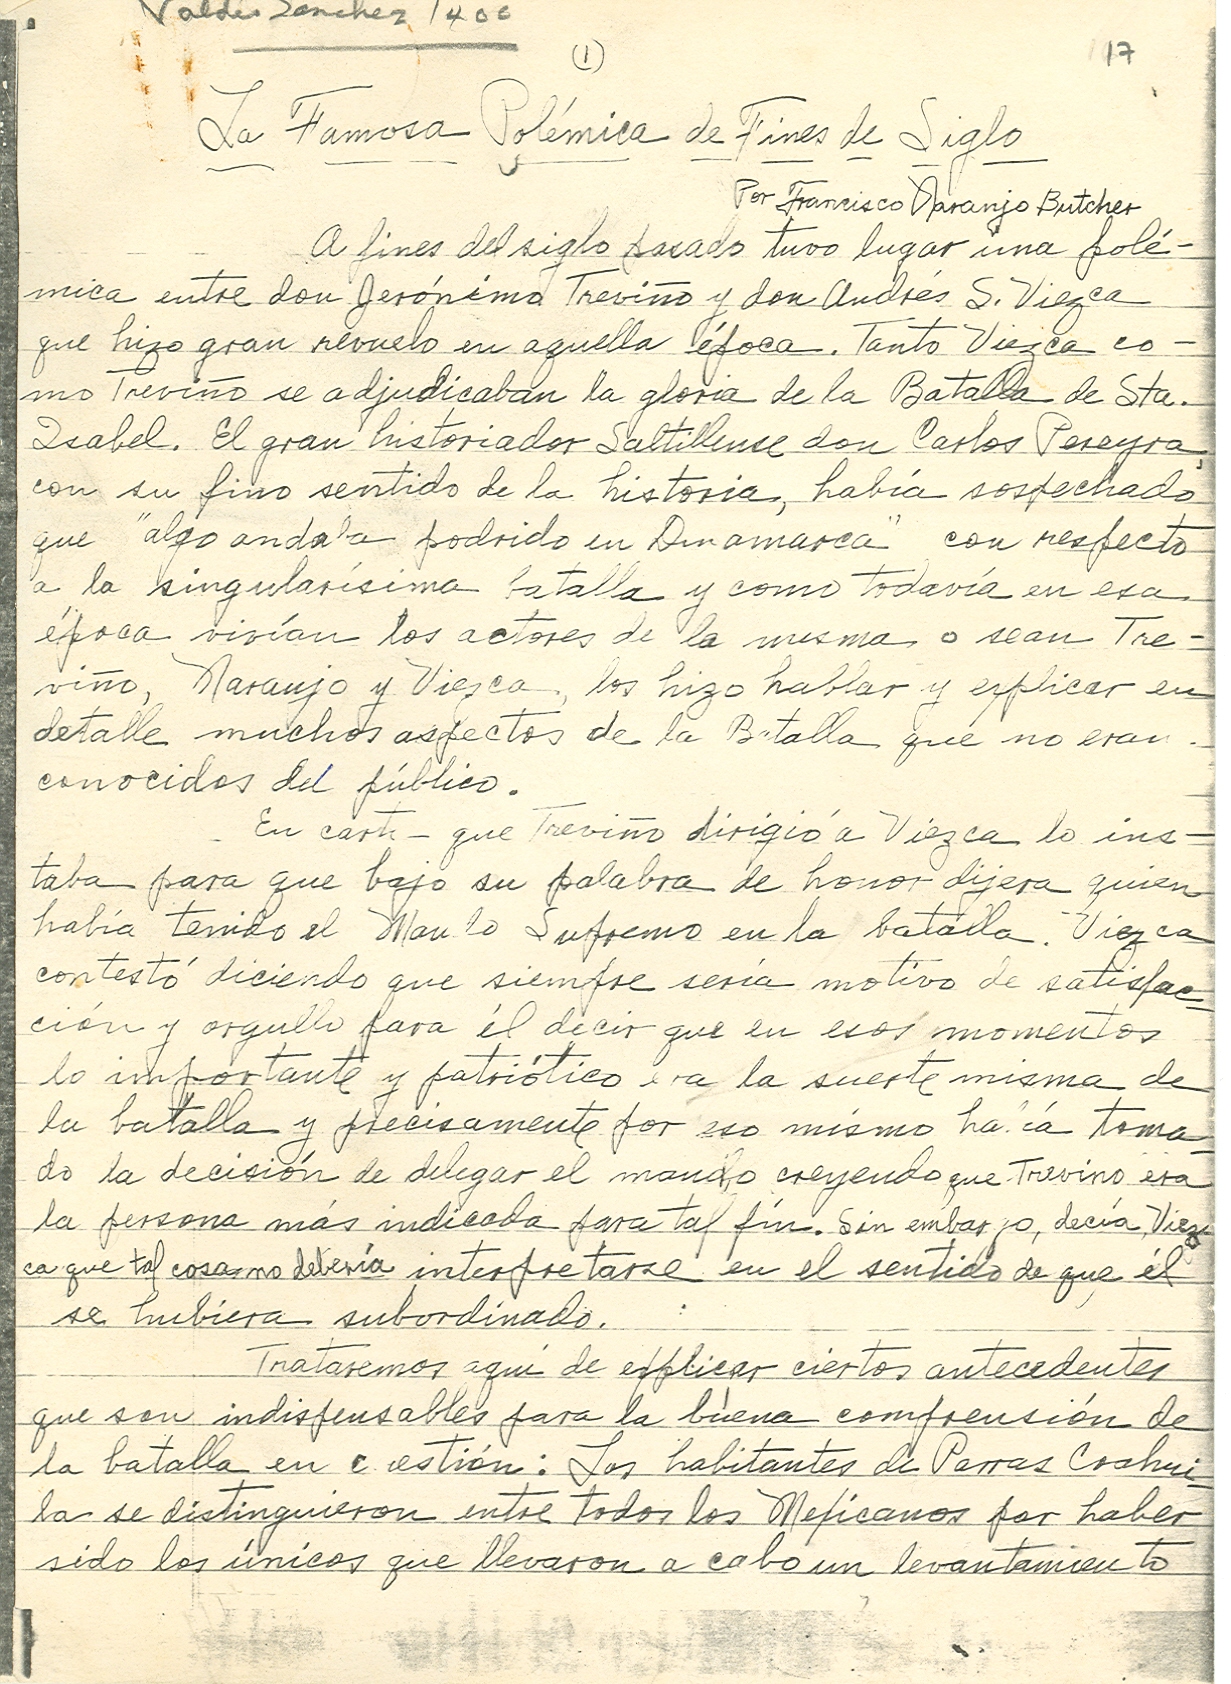 Valdés Sánchez 1400
(1)
17
La Famosa Polémica de Fines de Siglo
Por Francisco Naranjo Butcher
A fines del siglo pasado tuvo lugar una polé-
mica entre don Jerónimo Treviño y don Andrés S. Viezca
que hizo gran revuelo en aquella época. Tanto Viezca co-
mo Treviño se adjudicaban la gloria de la Batalla de Sta.
Isabel. El gran historiador Saltillense don Carlos Pereyra,
con su fino sentido de la historia, había sospechado
que "algo andaba podrido en Dinamarca" con respecto
a la singularísima batalla y como todavía en esa
época vivían los actores de la misma o sean Tre-
viño, Naranjo y Viezca, los hizo hablar y explicar en
detalle muchos aspectos de la Batalla que no eran
conocidos del público.
En carta que Treviño dirigió a Viezca lo ins-
taba para que bajo su palabra de honor dijera quien
había tenido el Mando Supremo en la batalla. Viezca
contestó diciendo que siempre sería motivo de satisfac-
ción y orgullo para él decir que en esos momentos
lo importante y patriótico era la suerte misma de
la batalla y precisamente por eso mismo había toma-
do la decisión de delegar el mando creyendo que Trevino era
la persona más indicada para tal fín. Sin embargo, decía, Viez-
ca que tal cosa no debería interpretarse en el sentido de que él
se hubiera subordinado.
Trataremos aquí de explicar ciertos antecedentes
que son indispensables para la buena comprensión de
la batalla en cuestión: Los habitantes de Parras Coahui-
la se distinguieron entre todos los Mexicanos por haber
sido los únicos que llevaron a cabo un levantamiento